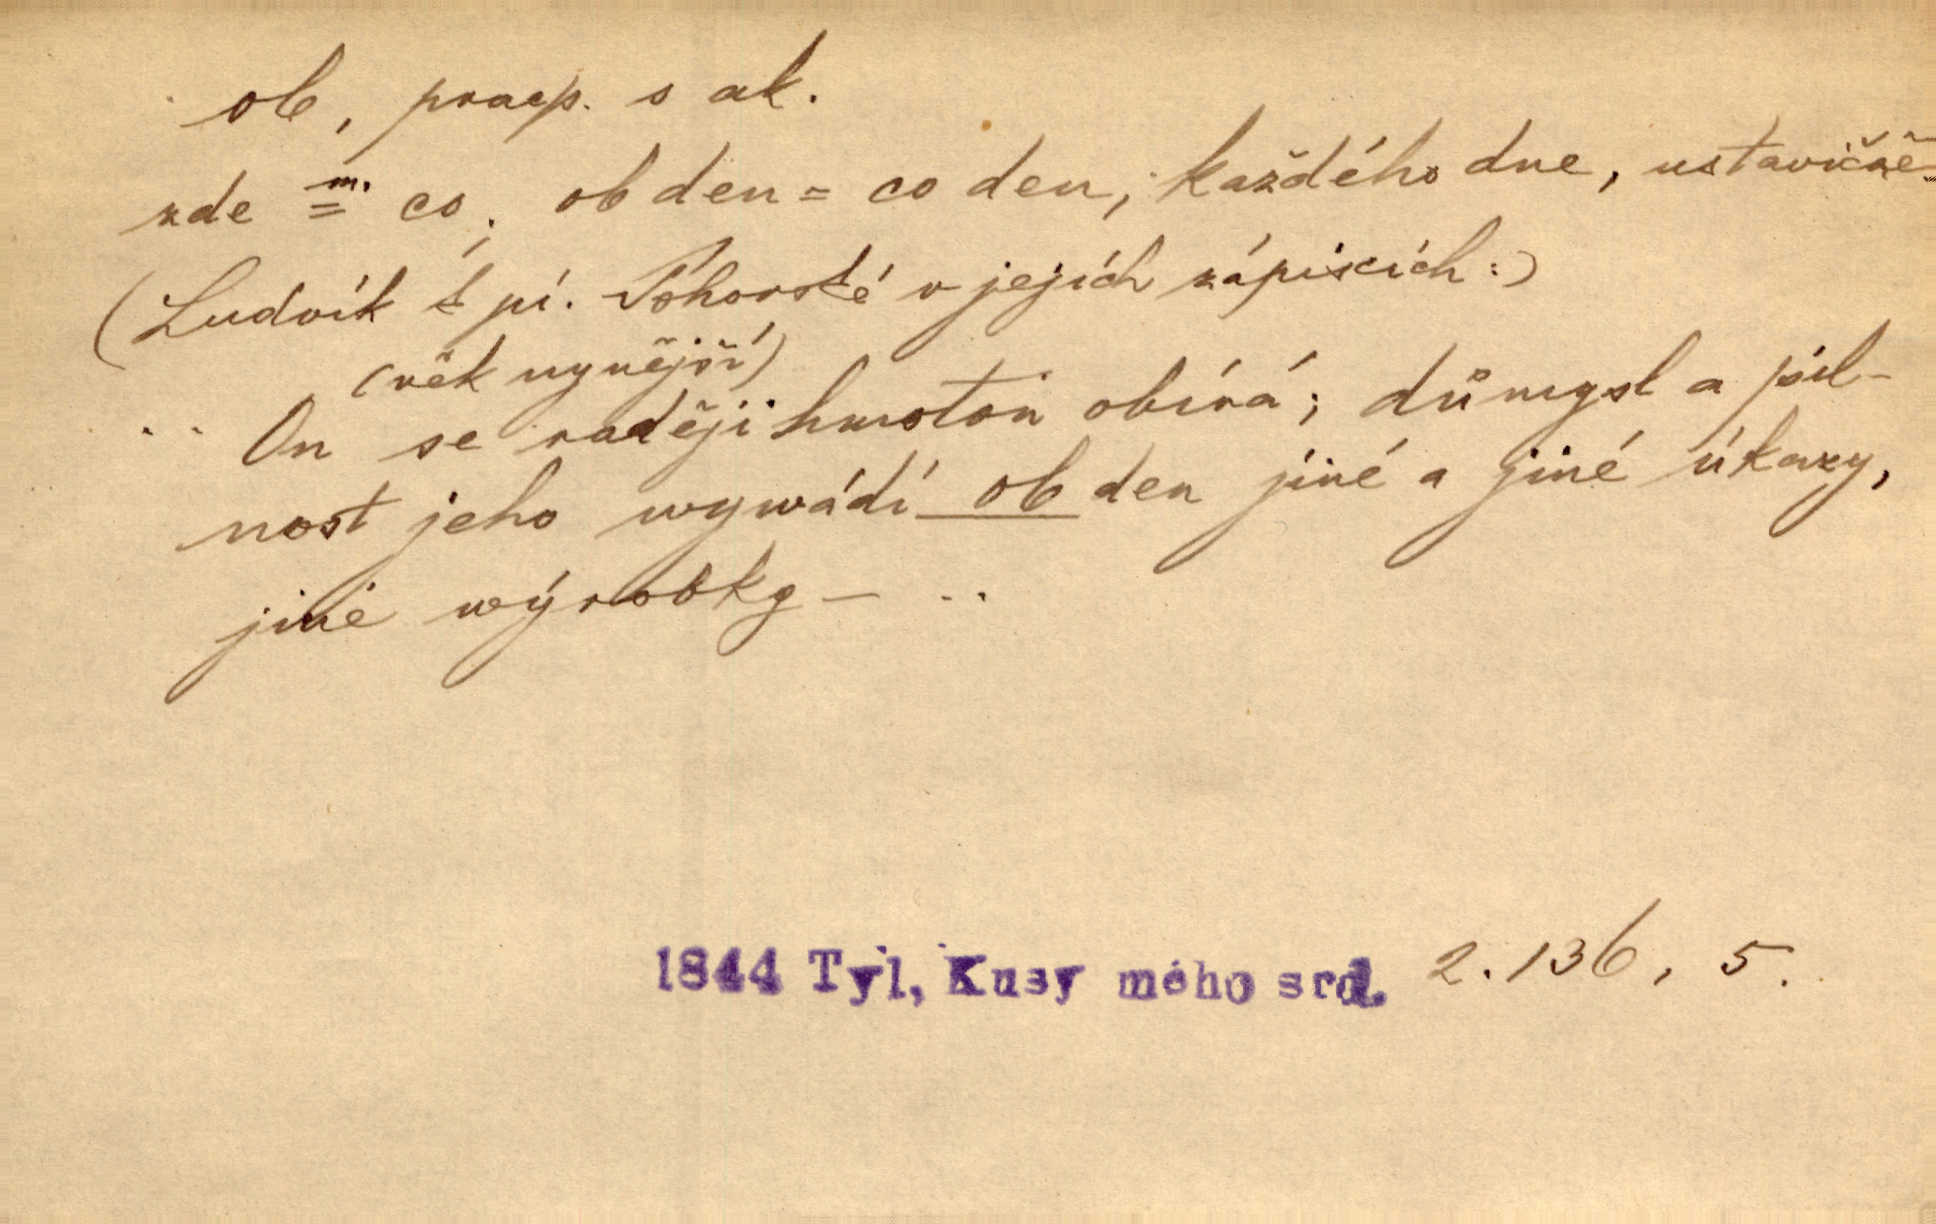 ob, praep. s ak.
zde = m. co; ob den = co den, každého dne, ustavičně
(Ludvík k pí. Tóhorské v jejích zápiscích:)
(věk nynější)
.. On se raději hmotou obírá; důmysl a píl-
nost jeho wywádí ob den jiné a jiné úkazy,
jiné wýrobky – ..
1844 Tyl, Kusy mého srd. 2.136, 5.